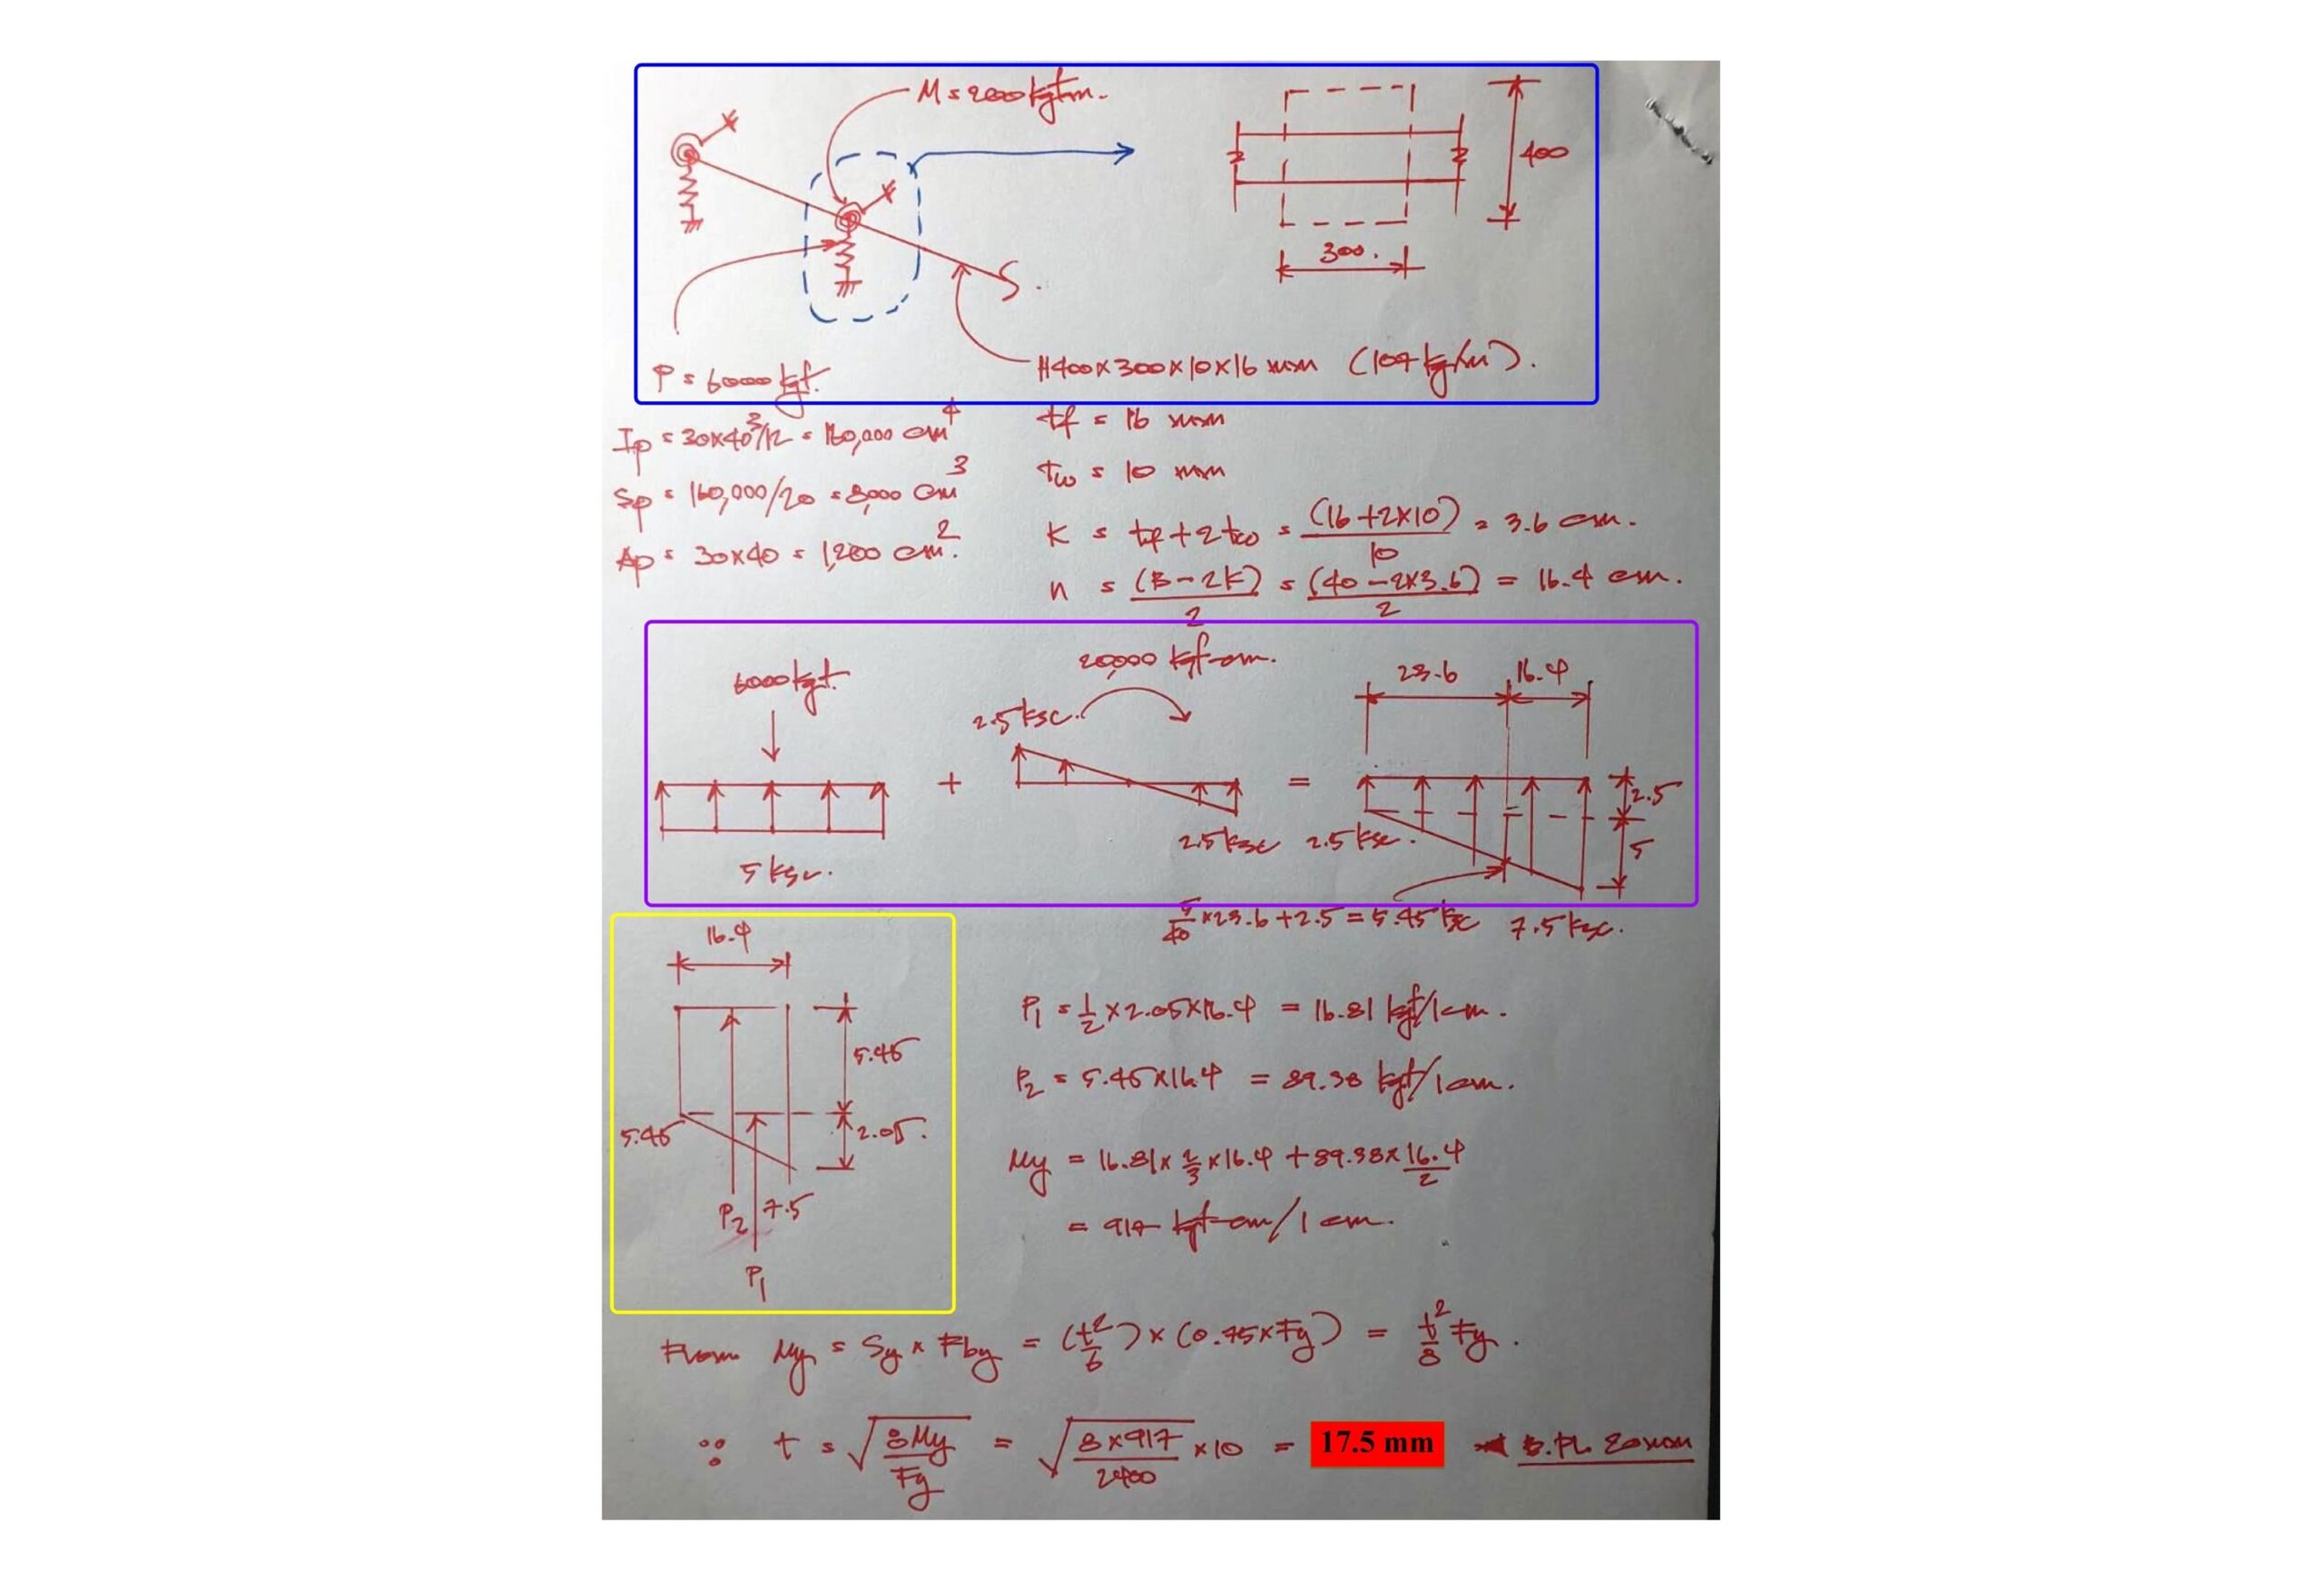 M = 200 kgf-m.
400
300.
P = 6000 kgf.
H400x300x10x16 mm (107 kg/m).
Ip = 30x40³/12 = 160,000 cm⁴
Sp = 160,000/20 = 8,000 cm³
Ap = 30x40 = 1,200 cm².
tf = 16 mm
tw = 10 mm
K = tf + 2tw = (16+2x10)/10 = 3.6 cm.
n = (B-2K)/2 = (40-2x3.6)/2 = 16.4 cm.
6000 kgf.
5 ksc.
+
20,000 kgf-cm.
2.5 ksc.
2.5 ksc
=
23.6 16.4
2.5
5
2.5 ksc.
5/40 x 23.6 + 2.5 = 5.45 ksc 7.5 ksc.
16.4
5.45
5.45
2.05.
P2 7.5
P1
P1 = 1/2 x 2.05 x 16.4 = 16.81 kgf/1cm.
P2 = 5.45x16.4 = 89.38 kgf/1cm.
My = 16.81 x 2/3 x 16.4 + 89.38 x 16.4/2
= 917 kgf-cm/1 cm.
From My = Sy x Fby = (t²/6) x (0.75xFy) = t²/8 Fy.
∴ t = √(8My/Fy) = √(8x917/2400) x10 = 17.5 mm B.PL 20mm